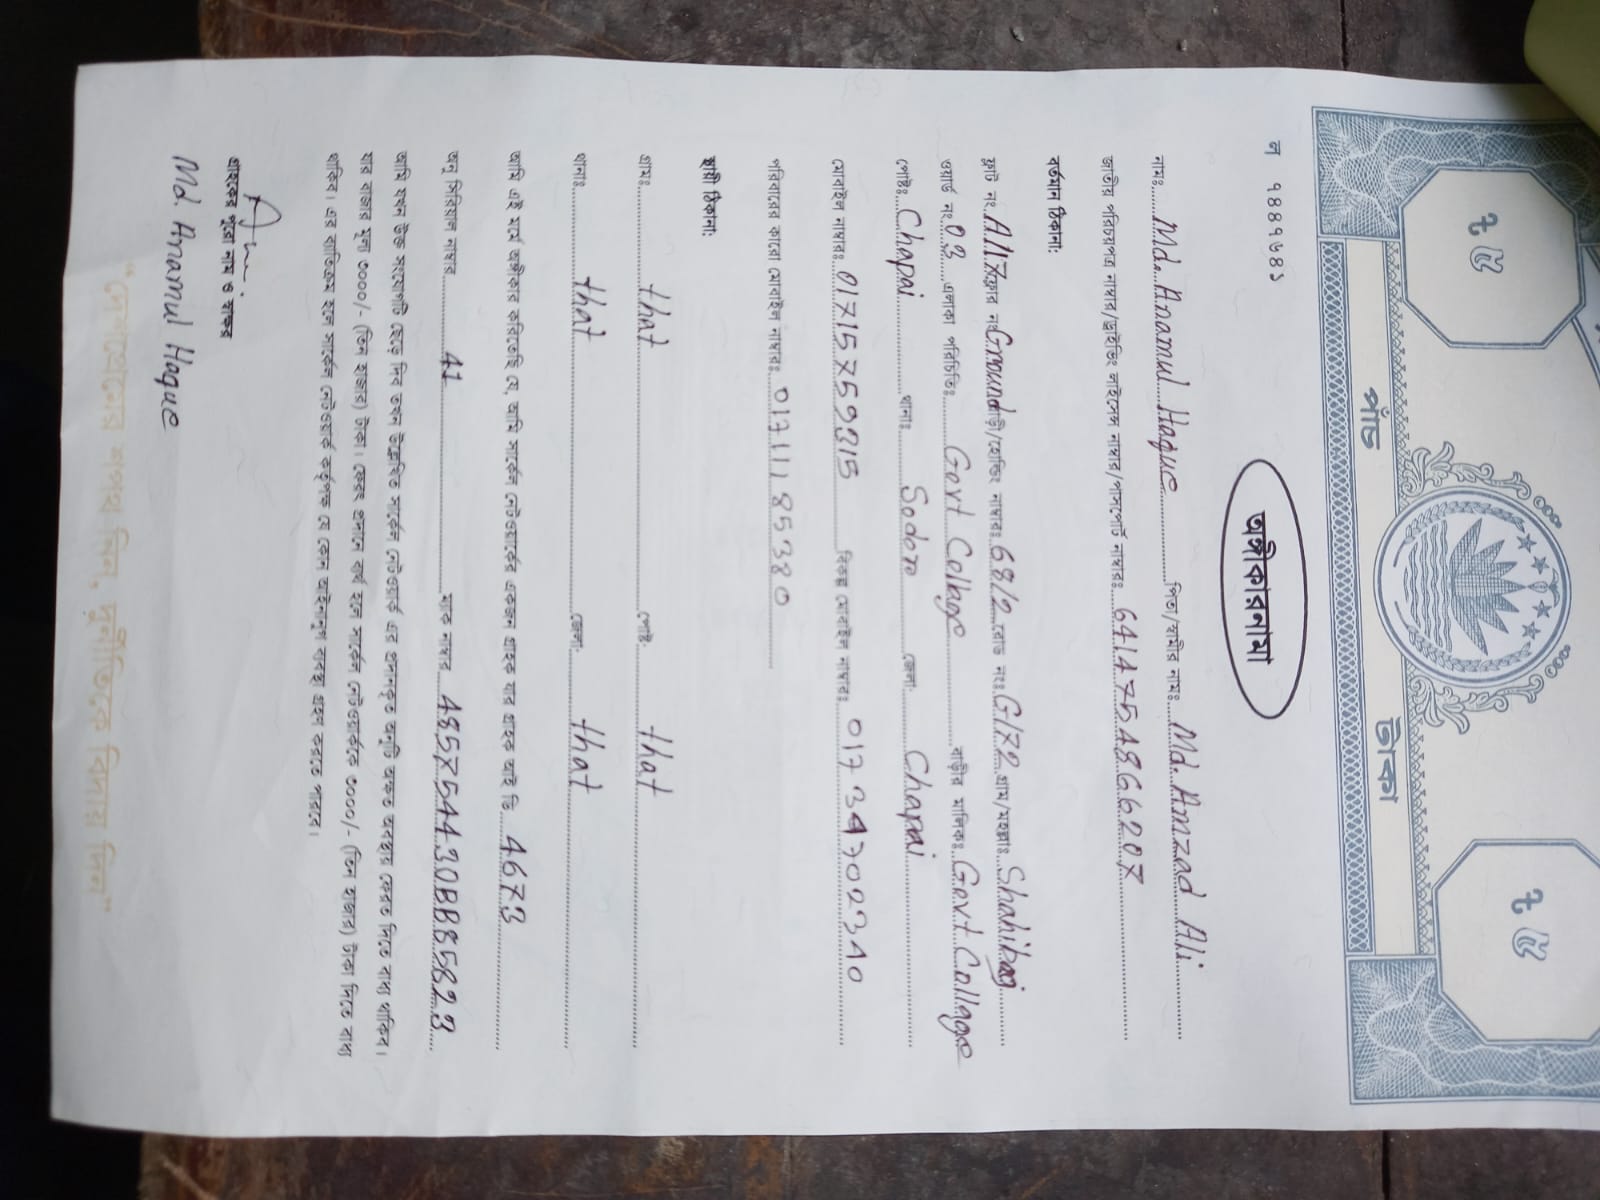 ৳ ৫ ৳ ৫
পাঁচ টাকা
ল ৭৪৪৭৬৪১
অঙ্গীকারনামা
নামঃ Md. Anamul Haque পিতা/স্বামীর নামঃ Md. Amzad Ali
জাতীয় পরিচয়পত্র নাম্বার/ড্রাইভিং লাইসেন্স নাম্বার/পাসপোর্ট নাম্বারঃ 6414754866207
বর্তমান ঠিকানা:
ফ্লাট নং A/17 ফ্লোর নং Ground বাড়ী/হোল্ডিং নাম্বারঃ 68/2 রোড নংঃ G/72 গ্রাম/মহল্লাঃ Shahibag
ওয়ার্ড নং 03 এলাকা পরিচিতিঃ Govt Collage বাড়ীর মালিকঃ Govt. Collage
পোষ্টঃ Chapai থানাঃ Sodor জেলা: Chapai
মোবাইল নাম্বারঃ 01715759815 বিকল্প মোবাইল নাম্বারঃ 01734702340
পরিবারের কারো মোবাইল নাম্বারঃ 01711185380
স্থায়ী ঠিকানা:
গ্রামঃ that পোষ্ট: that
থানাঃ that জেলা: that
আমি এই মর্মে অঙ্গীকার করিতেছি যে, আমি সার্কেল নেটওয়ার্কের একজন গ্রাহক যার গ্রাহক আই ডি 4673
অনু সিরিয়াল নাম্বার 41 ম্যাক নাম্বার 485754430BB85823
আমি যখন উক্ত সংযোগটি ছেড়ে দিব তখন উল্লেখিত সার্কেল নেটওয়ার্ক এর প্রদানকৃত অনুটি অক্ষত অবস্থায় ফেরত দিতে বাধ্য থাকিব।
যার বাজার মূল্য ৩০০০/- (তিন হাজার) টাকা। ফেরৎ প্রদানে ব্যর্থ হলে সার্কেল নেটওয়ার্ককে ৩০০০/- (তিন হাজার) টাকা দিতে বাধ্য
থাকিব। এর ব্যতিক্রম হলে সার্কেল নেটওয়ার্ক কর্তৃপক্ষ যে কোন আইনানুগ ব্যবস্থা গ্রহন করতে পারবে।
গ্রাহকের পুরো নাম ও স্বাক্ষর
Md. Anamul Haque
"দেশপ্রেমের শপথ নিন, দুর্নীতিকে বিদায় দিন"